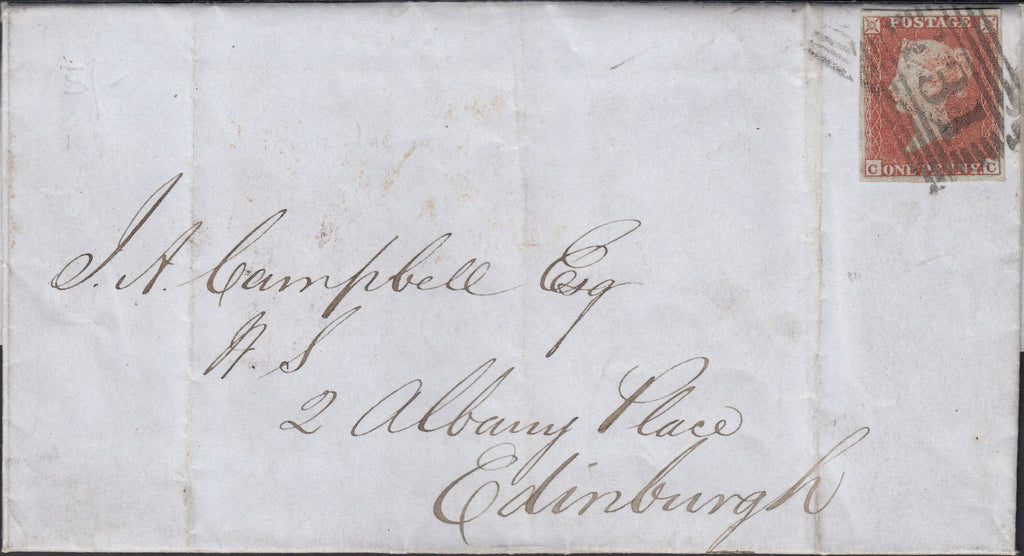 POSTAGE
31
C ONE PENNY. C
J. A. Campbell Esq
W. S
2 Albany Place
Edinburgh